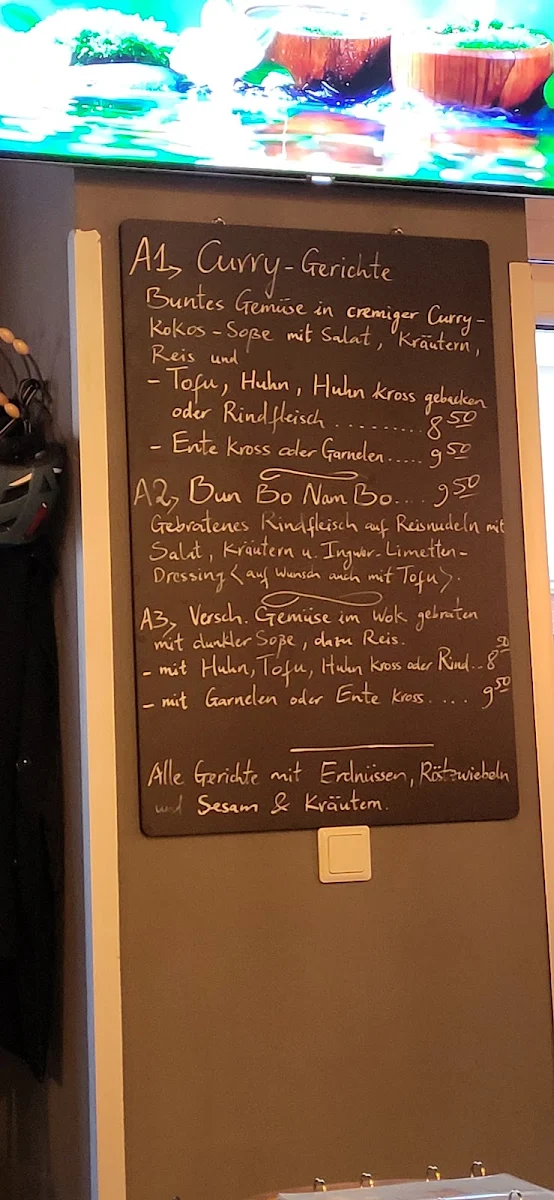 A1, Curry-Gerichte
Buntes Gemüse in cremiger Curry-
Kokos-Soße mit Salat, Kräutern,
Reis und
- Tofu, Huhn, Huhn Kross gebacken
oder Rindfleisch ......... 8 50
- Ente Kross oder Garnelen..... 9 50
A2, Bun Bo Nam Bo.... 9 50
Gebratenes Rindfleisch auf Reisnudeln mit
Salat, Kräutern u. Ingwer-Limetten-
Dressing <auf Wunsch auch mit Tofu>.
A3, Versch. Gemüse im Wok gebraten
mit dunkler Soße, dazu Reis.
- mit Huhn, Tofu, Huhn Kross oder Rind...8 50
- mit Garnelen oder Ente Kross.... 9 50
Alle Gerichte mit Erdnüssen, Röstzwiebeln
und Sesam & Kräutern.